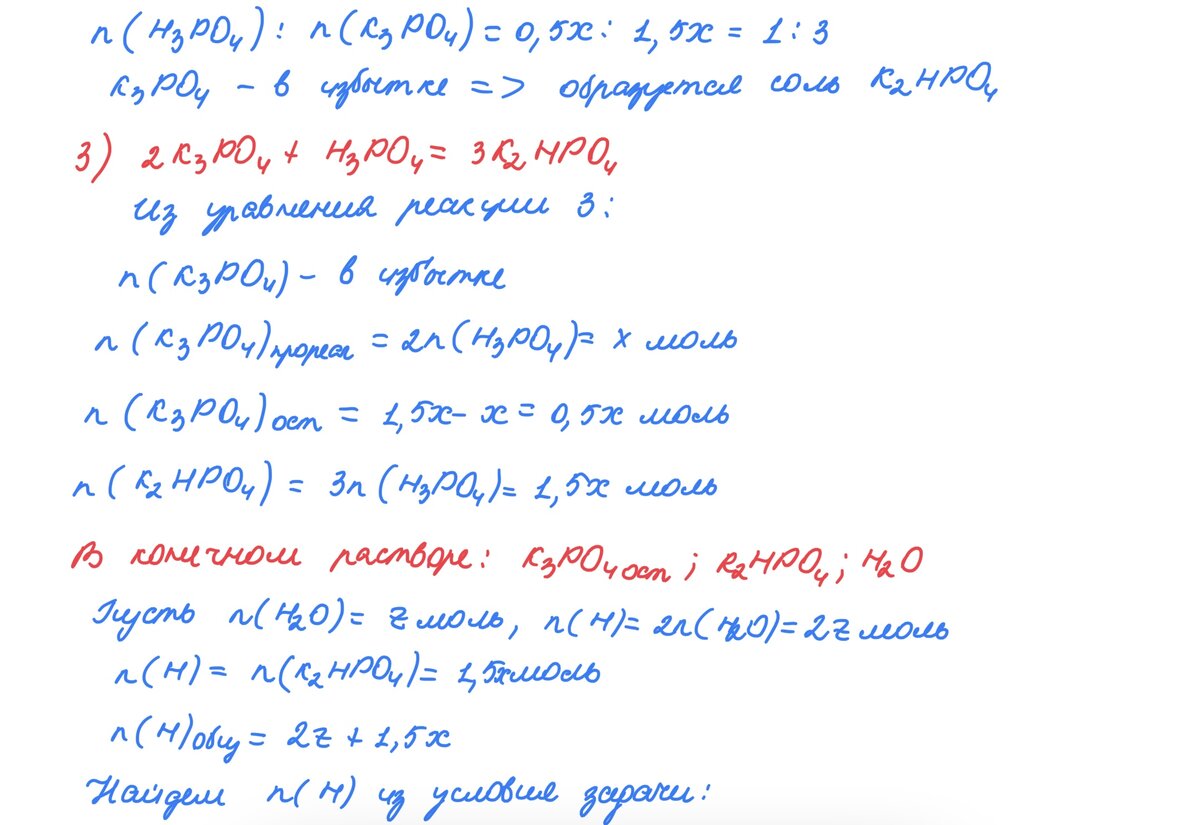 n(H₃PO₄) : n(K₃PO₄) = 0,5x : 1,5x = 1 : 3
K₃PO₄ – в избытке => образуется соль K₂HPO₄
3) 2K₃PO₄ + H₃PO₄ = 3K₂HPO₄
Из уравнения реакции 3:
n(K₃PO₄) – в избытке
n(K₃PO₄)прореаг = 2n(H₃PO₄) = x моль
n(K₃PO₄)ост = 1,5x – x = 0,5x моль
n(K₂HPO₄) = 3n(H₃PO₄) = 1,5x моль
В конечном растворе: K₃PO₄ ост ; K₂HPO₄ ; H₂O
Пусть n(H₂O) = z моль, n(H) = 2n(H₂O) = 2z моль
n(H) = n(K₂HPO₄) = 1,5x моль
n(H)общ = 2z + 1,5x
Найдем n(H) из условия задачи: